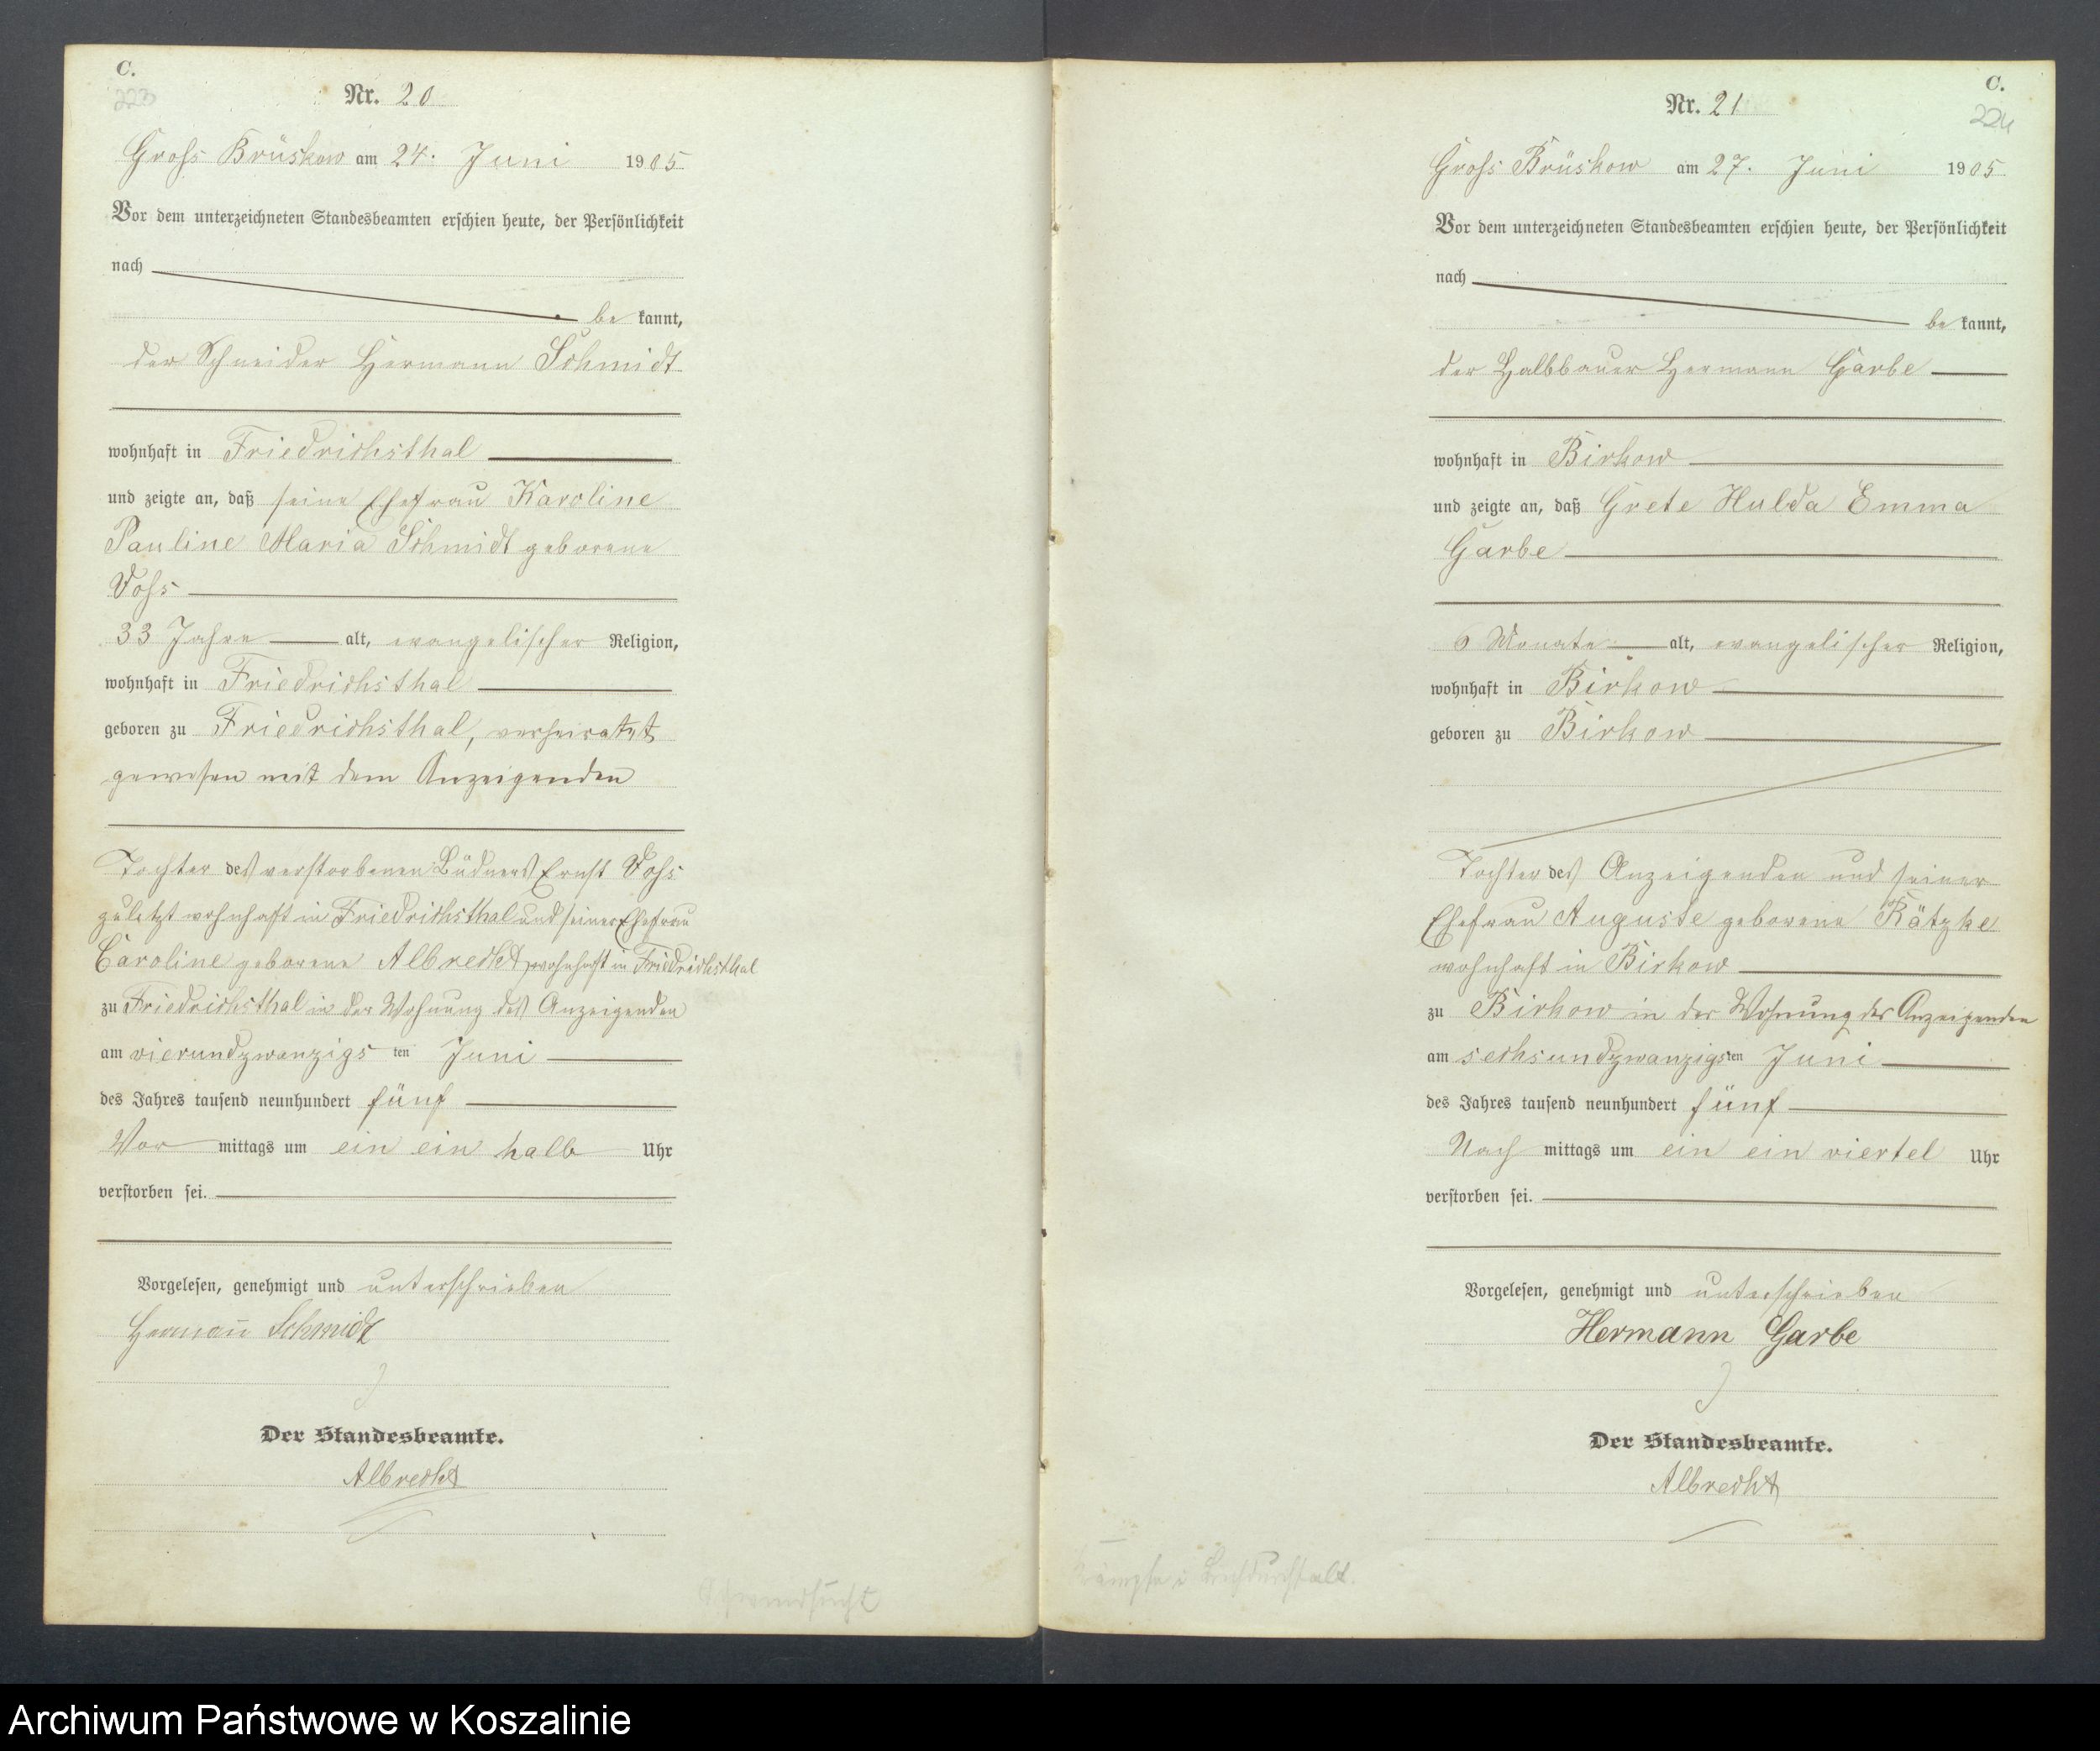 C.
223
Nr. 20
Groß Brüskow am 24. Juni 1905
Vor dem unterzeichneten Standesbeamten erschien heute, der Persönlichkeit
nach
be kannt,
der Schneider Hermann Schmidt
wohnhaft in Friedrichsthal
und zeigte an, daß seine Ehefrau Karoline
Pauline Maria Schmidt geborene
Voß
33 Jahre alt, evangelischer Religion,
wohnhaft in Friedrichsthal
geboren zu Friedrichsthal, verheiratet
gewesen mit dem Anzeigenden
Tochter des verstorbenen Büdners Ernst Voß
zuletzt wohnhaft in Friedrichsthal und seiner Ehefrau
Caroline geborene Albrecht, wohnhaft in Friedrichsthal
zu Friedrichsthal in der Wohnung des Anzeigenden
am vierundzwanzigs ten Juni
des Jahres tausend neunhundert fünf
Vor mittags um ein ein halb Uhr
verstorben sei.
Vorgelesen, genehmigt und unterschrieben
Hermann Schmidt
Der Standesbeamte.
Albrecht
Schwindsucht
C.
224
Nr. 21
Groß Brüskow am 27. Juni 1905
Vor dem unterzeichneten Standesbeamten erschien heute, der Persönlichkeit
nach
be kannt,
der Halbbauer Hermann Garbe
wohnhaft in Birkow
und zeigte an, daß Grete Hulda Emma
Garbe
6 Monate alt, evangelischer Religion,
wohnhaft in Birkow
geboren zu Birkow
Tochter des Anzeigenden und seiner
Ehefrau Auguste geborene Rätzke
wohnhaft in Birkow
zu Birkow in der Wohnung des Anzeigenden
am sechsundzwanzigsten Juni
des Jahres tausend neunhundert fünf
Nach mittags um ein ein viertel Uhr
verstorben sei.
Vorgelesen, genehmigt und unterschrieben
Hermann Garbe
Der Standesbeamte.
Albrecht
Archiwum Państwowe w Koszalinie